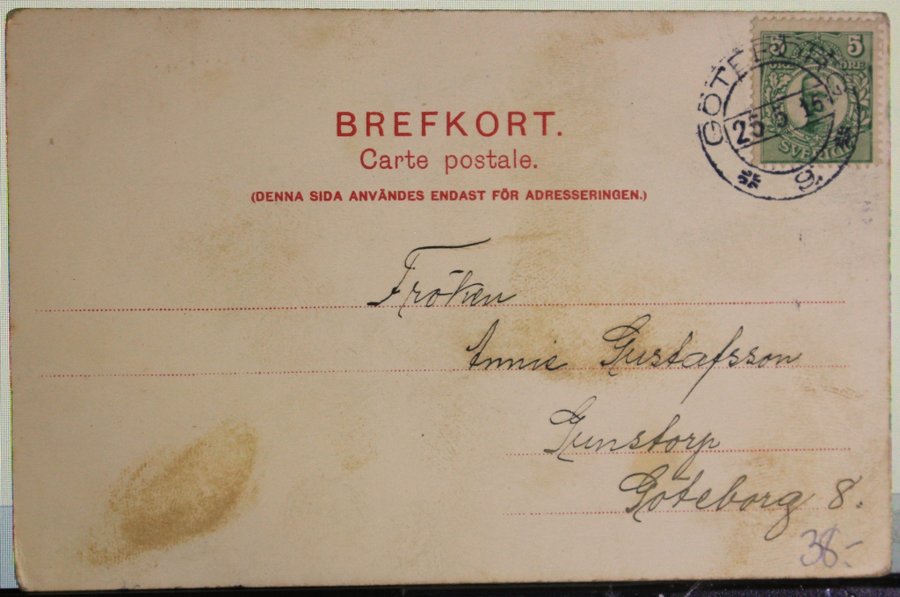 5 5
ÖRE
SVERIGE
GÖTEBORG
25 5 15
9.
BREFKORT.
Carte postale.
(DENNA SIDA ANVÄNDES ENDAST FÖR ADRESSERINGEN.)
Fröken
Annie Gustafsson
Gunstorp
Göteborg 8.
38:-